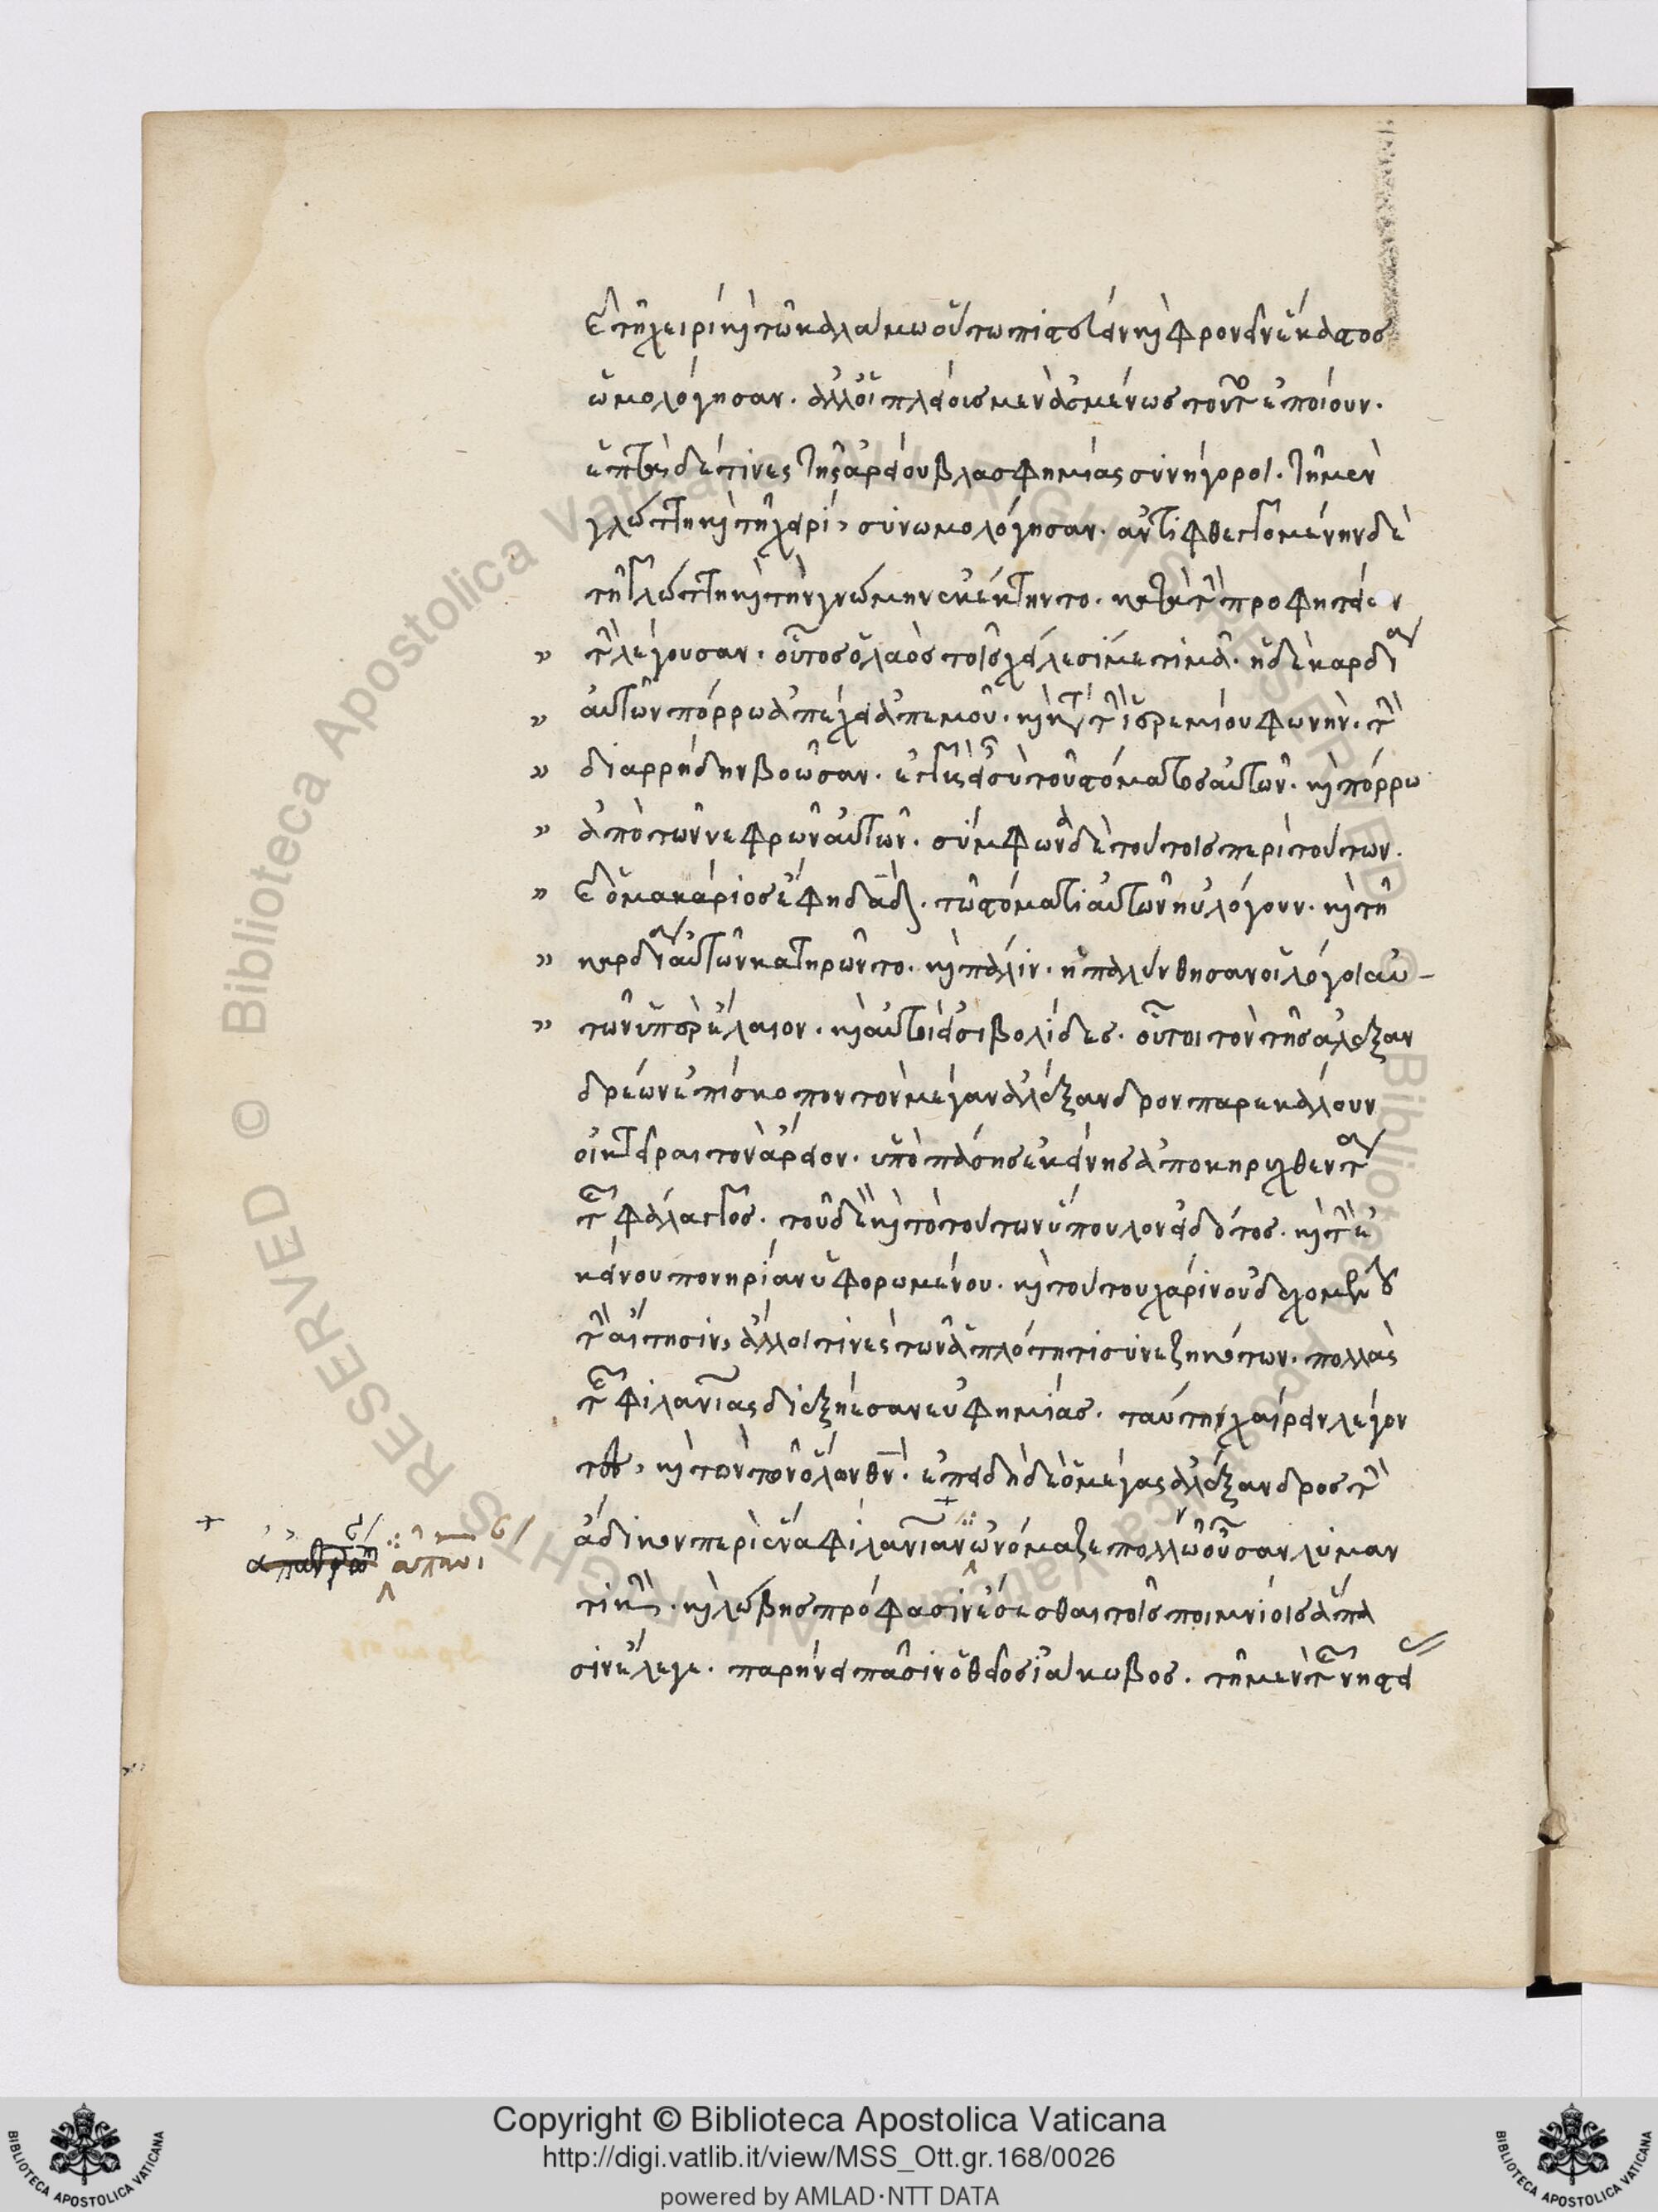 καὶ τῇ χειρὶ καὶ τῷ καλάμῳ οὕτω πιστεύειν καὶ φρονεῖν ἕκαστος
ὡμολόγησαν. ἀλλ' οἱ πλείους μὲν ἀσμένως τοῦτο ἐποίουν.
ἑπτὰ δέ τινες τῆς ἀρείου βλασφημίας συνήγοροι. τῇ μὲν
γλώττῃ καὶ τῇ χειρὶ, συνωμολόγησαν. ἀντιφθεγγομένην δὲ
τῇ γλώττῃ καὶ τὴν γνώμην ἐκέκτηντο. κατὰ τὴν προφητείαν
» τὴν λέγουσαν. οὗτος ὁ λαὸς τοῖς χείλεσί με τιμᾷ. ἡ δὲ καρδία
» αὐτῶν πόρρω ἀπέχει ἀπ' ἐμοῦ. καὶ κατὰ τὴν ἱερεμίου φωνὴν. τὴν
» διαρρήδην βοῶσαν. ἐγγὺς εἶ σὺ τοῦ στόματος αὐτῶν. καὶ πόρρω
» ἀπὸ τῶν νεφρῶν αὐτῶν. σύμφωνα δὲ τούτοις περὶ τούτων.
» καὶ ὁ μακάριος ἔφη δαδ. τῷ στόματι αὐτῶν ηὐλόγουν. καὶ τῇ
» καρδίᾳ αὐτῶν κατηρῶντο. καὶ πάλιν. ἡπαλύνθησαν οἱ λόγοι αὐ-
» τῶν ὑπὲρ ἔλαιον. καὶ αὐτοί εἰσι βολίδες. οὗτοι τὸν τῆς ἀλεξαν
δρέων ἐπίσκοπον τὸν μέγαν ἀλέξανδρον παρεκάλουν
οἰκτεῖραι τὸν ἄρειον. ὑπὸ πάσης ἐκείνης ἀποκηρυχθέντα
τῆς φάλαγγος. τοῦ δὲ καὶ τὸ τούτων ὕπουλον εἰδότος. καὶ τὴν ἐ
κείνου πονηρίαν ὑφορωμένου. καὶ τούτου χάριν οὐ δεχομένου
τὴν αἴτησιν, ἄλλοι τινὲς τῶν ἁπλότητι συνεζηκότων. πολλὰς
τῆς φιλανίας διεξῄεσαν εὐφημίας. ταύτῃ χαίρειν λέγον
τες, καὶ τὸν τῶν ὅλων θν. ἐπειδὴ δὲ ὁ μέγας ἀλέξανδρος τὴν
ἄδικον περὶ ἕνα φιλανίαν ὠνόμαζε πολλῶν οὖσαν λύμαν
τικὴν. καὶ λώβης πρόφασιν ἔσεσθαι τοῖς ποιμνίοις ἅπα
σιν ἔλεγε. παρῄνει πᾶσιν ὁ θεῖος ἰάκωβος. τῇ μὲν τῆς νηστεί